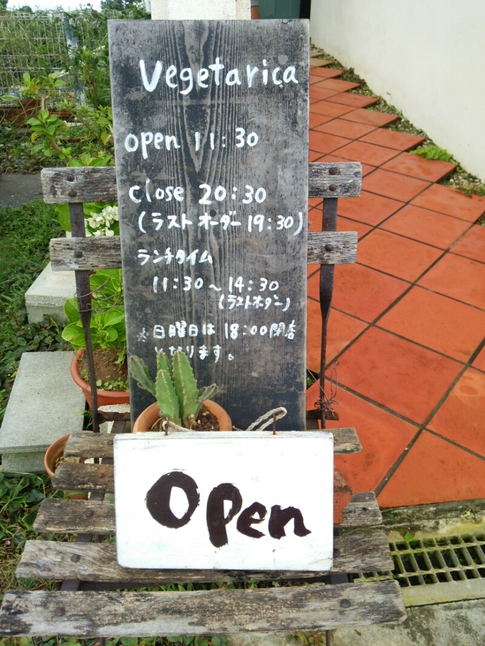 Vegetarica
open 11:30
close 20:30
(ラストオーダー 19:30)
ランチタイム
11:30～14:30
(ラストオーダー)
※日曜日は 18:00閉店
となります。
Open